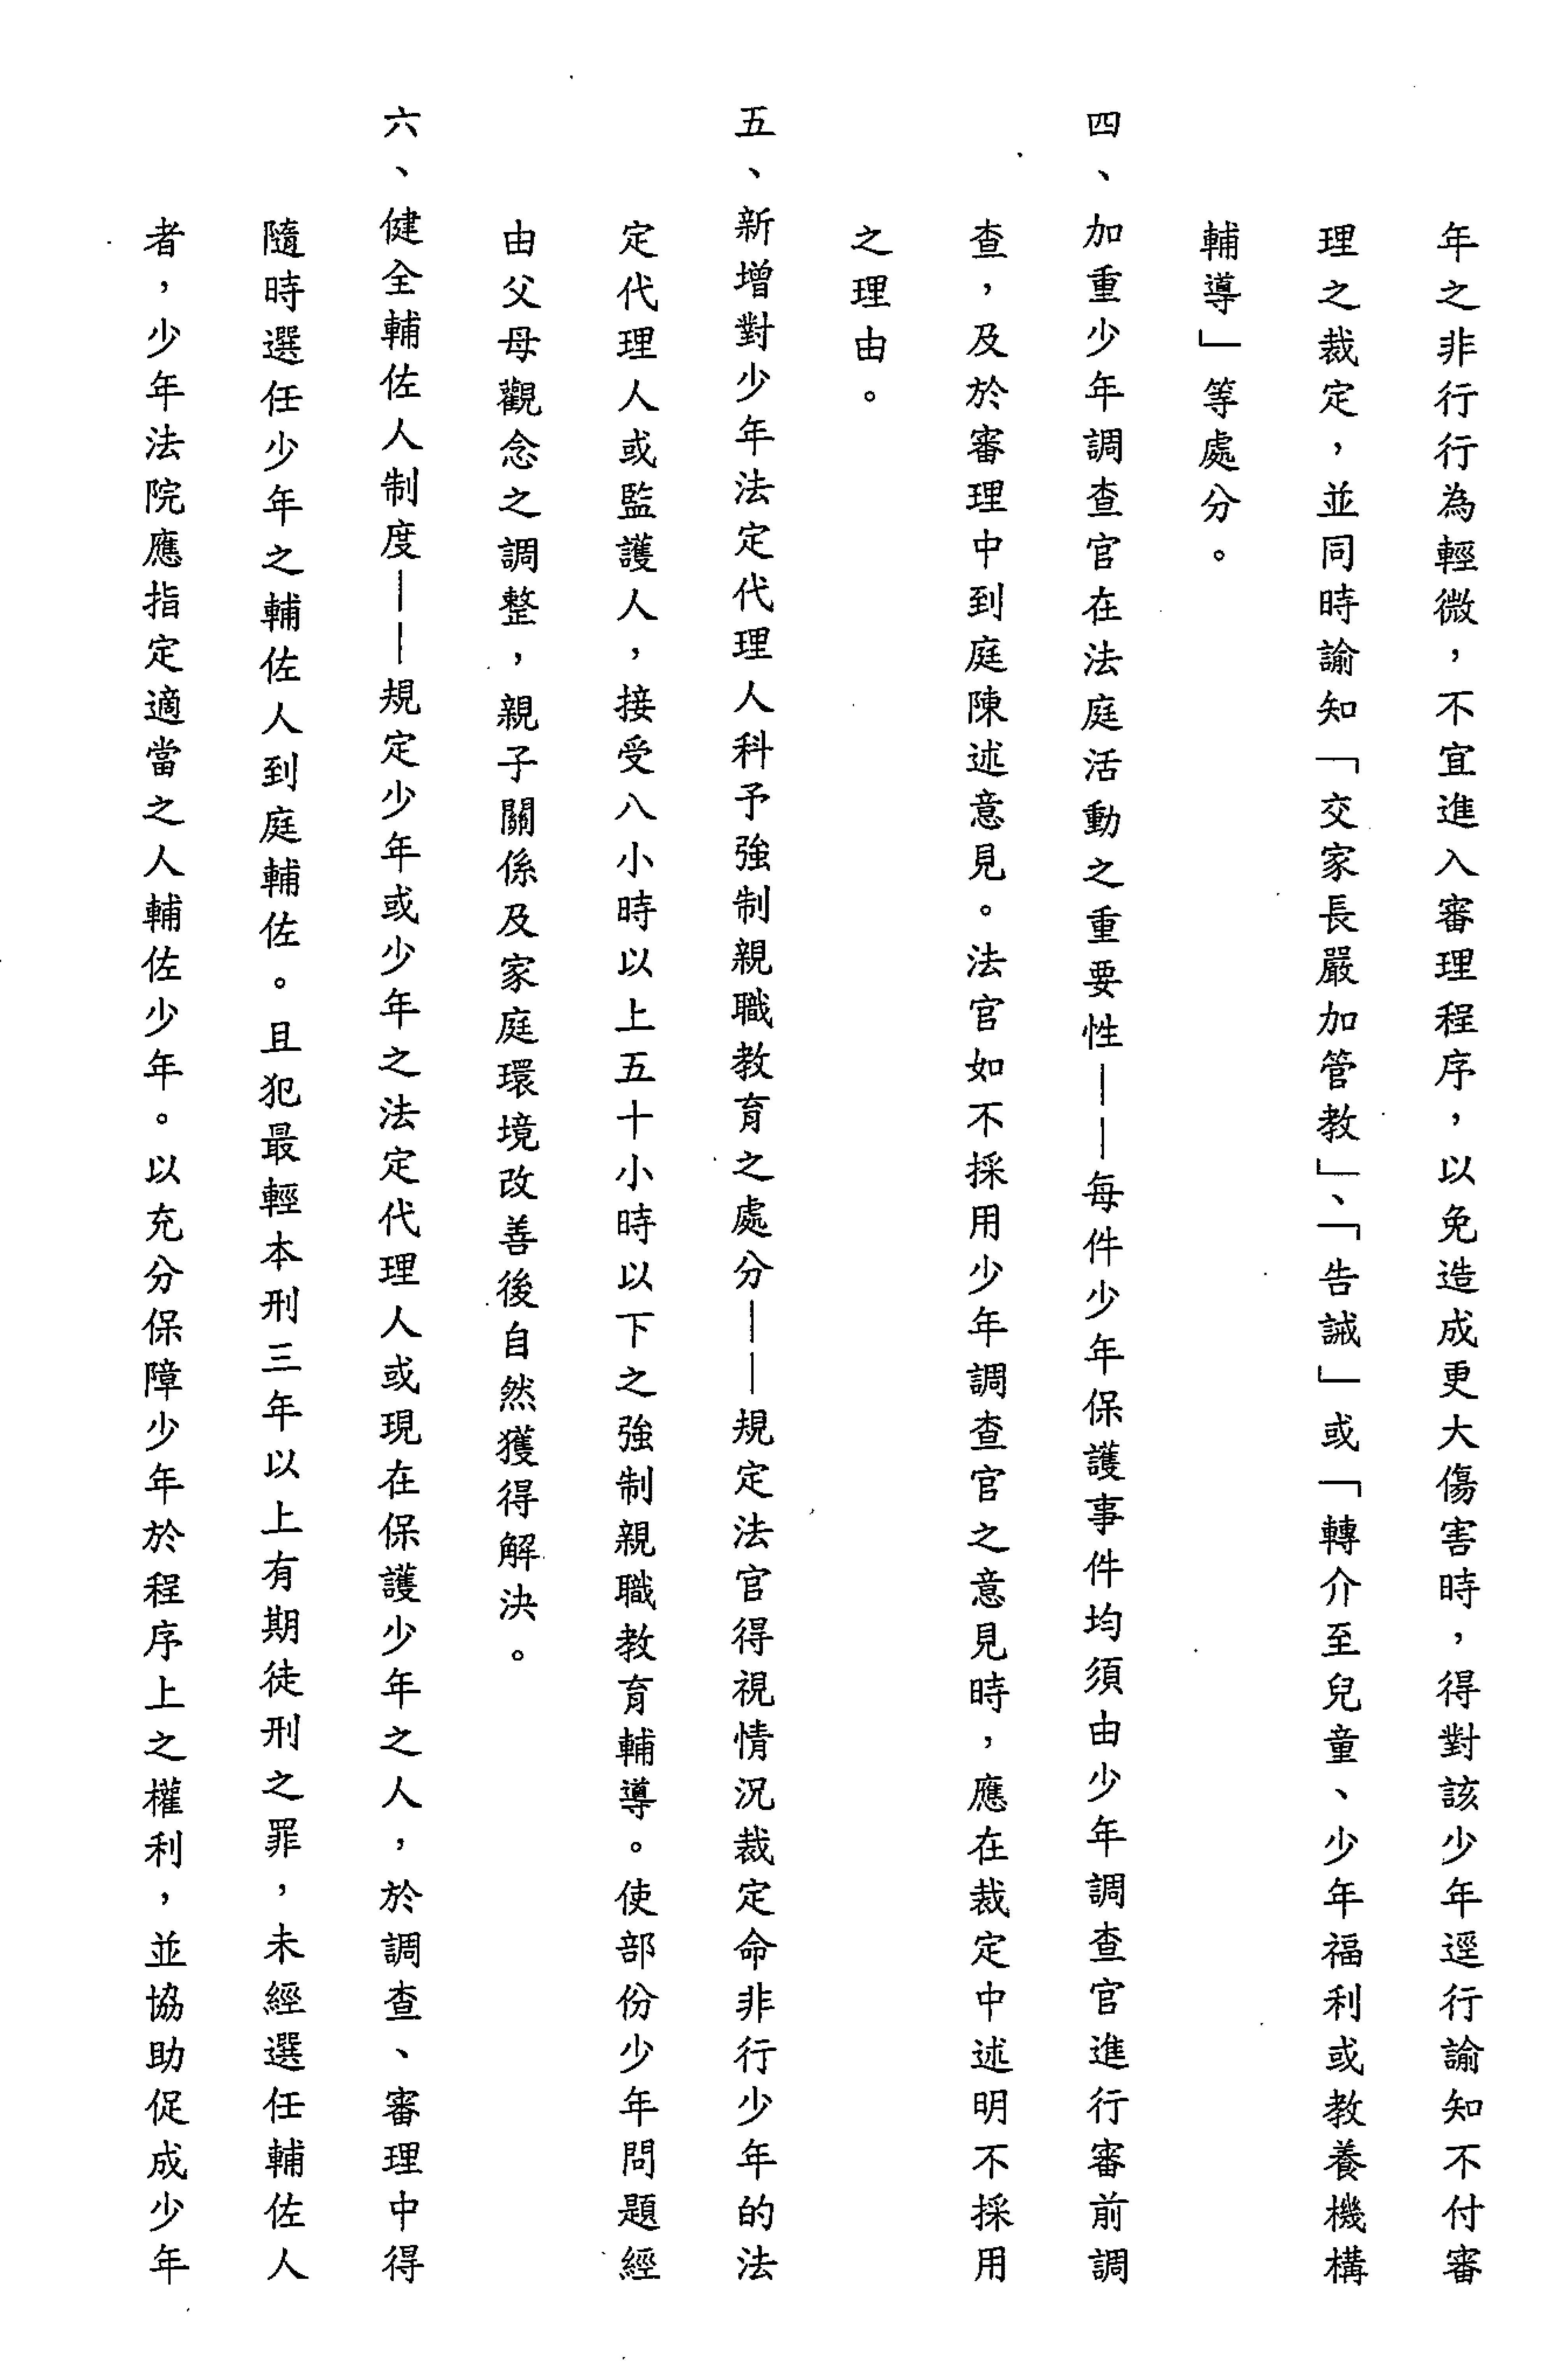 年之非行行為輕微，不宜進入審理程序，以免造成更大傷害時，得對該少年逕行諭知不付審
理之裁定，並同時諭知「交家長嚴加管教」、「告誡」或「轉介至兒童、少年福利或教養機構
輔導」等處分。
四、加重少年調查官在法庭活動之重要性——每件少年保護事件均須由少年調查官進行審前調
查，及於審理中到庭陳述意見。法官如不採用少年調查官之意見時，應在裁定中述明不採用
之理由。
五、新增對少年法定代理人科予強制親職教育之處分——規定法官得視情況裁定命非行少年的法
定代理人或監護人，接受八小時以上五十小時以下之強制親職教育輔導。使部份少年問題經
由父母觀念之調整，親子關係及家庭環境改善後自然獲得解決。
六、健全輔佐人制度——規定少年或少年之法定代理人或現在保護少年之人，於調查、審理中得
隨時選任少年之輔佐人到庭輔佐。且犯最輕本刑三年以上有期徒刑之罪，未經選任輔佐人
者，少年法院應指定適當之人輔佐少年。以充分保障少年於程序上之權利，並協助促成少年